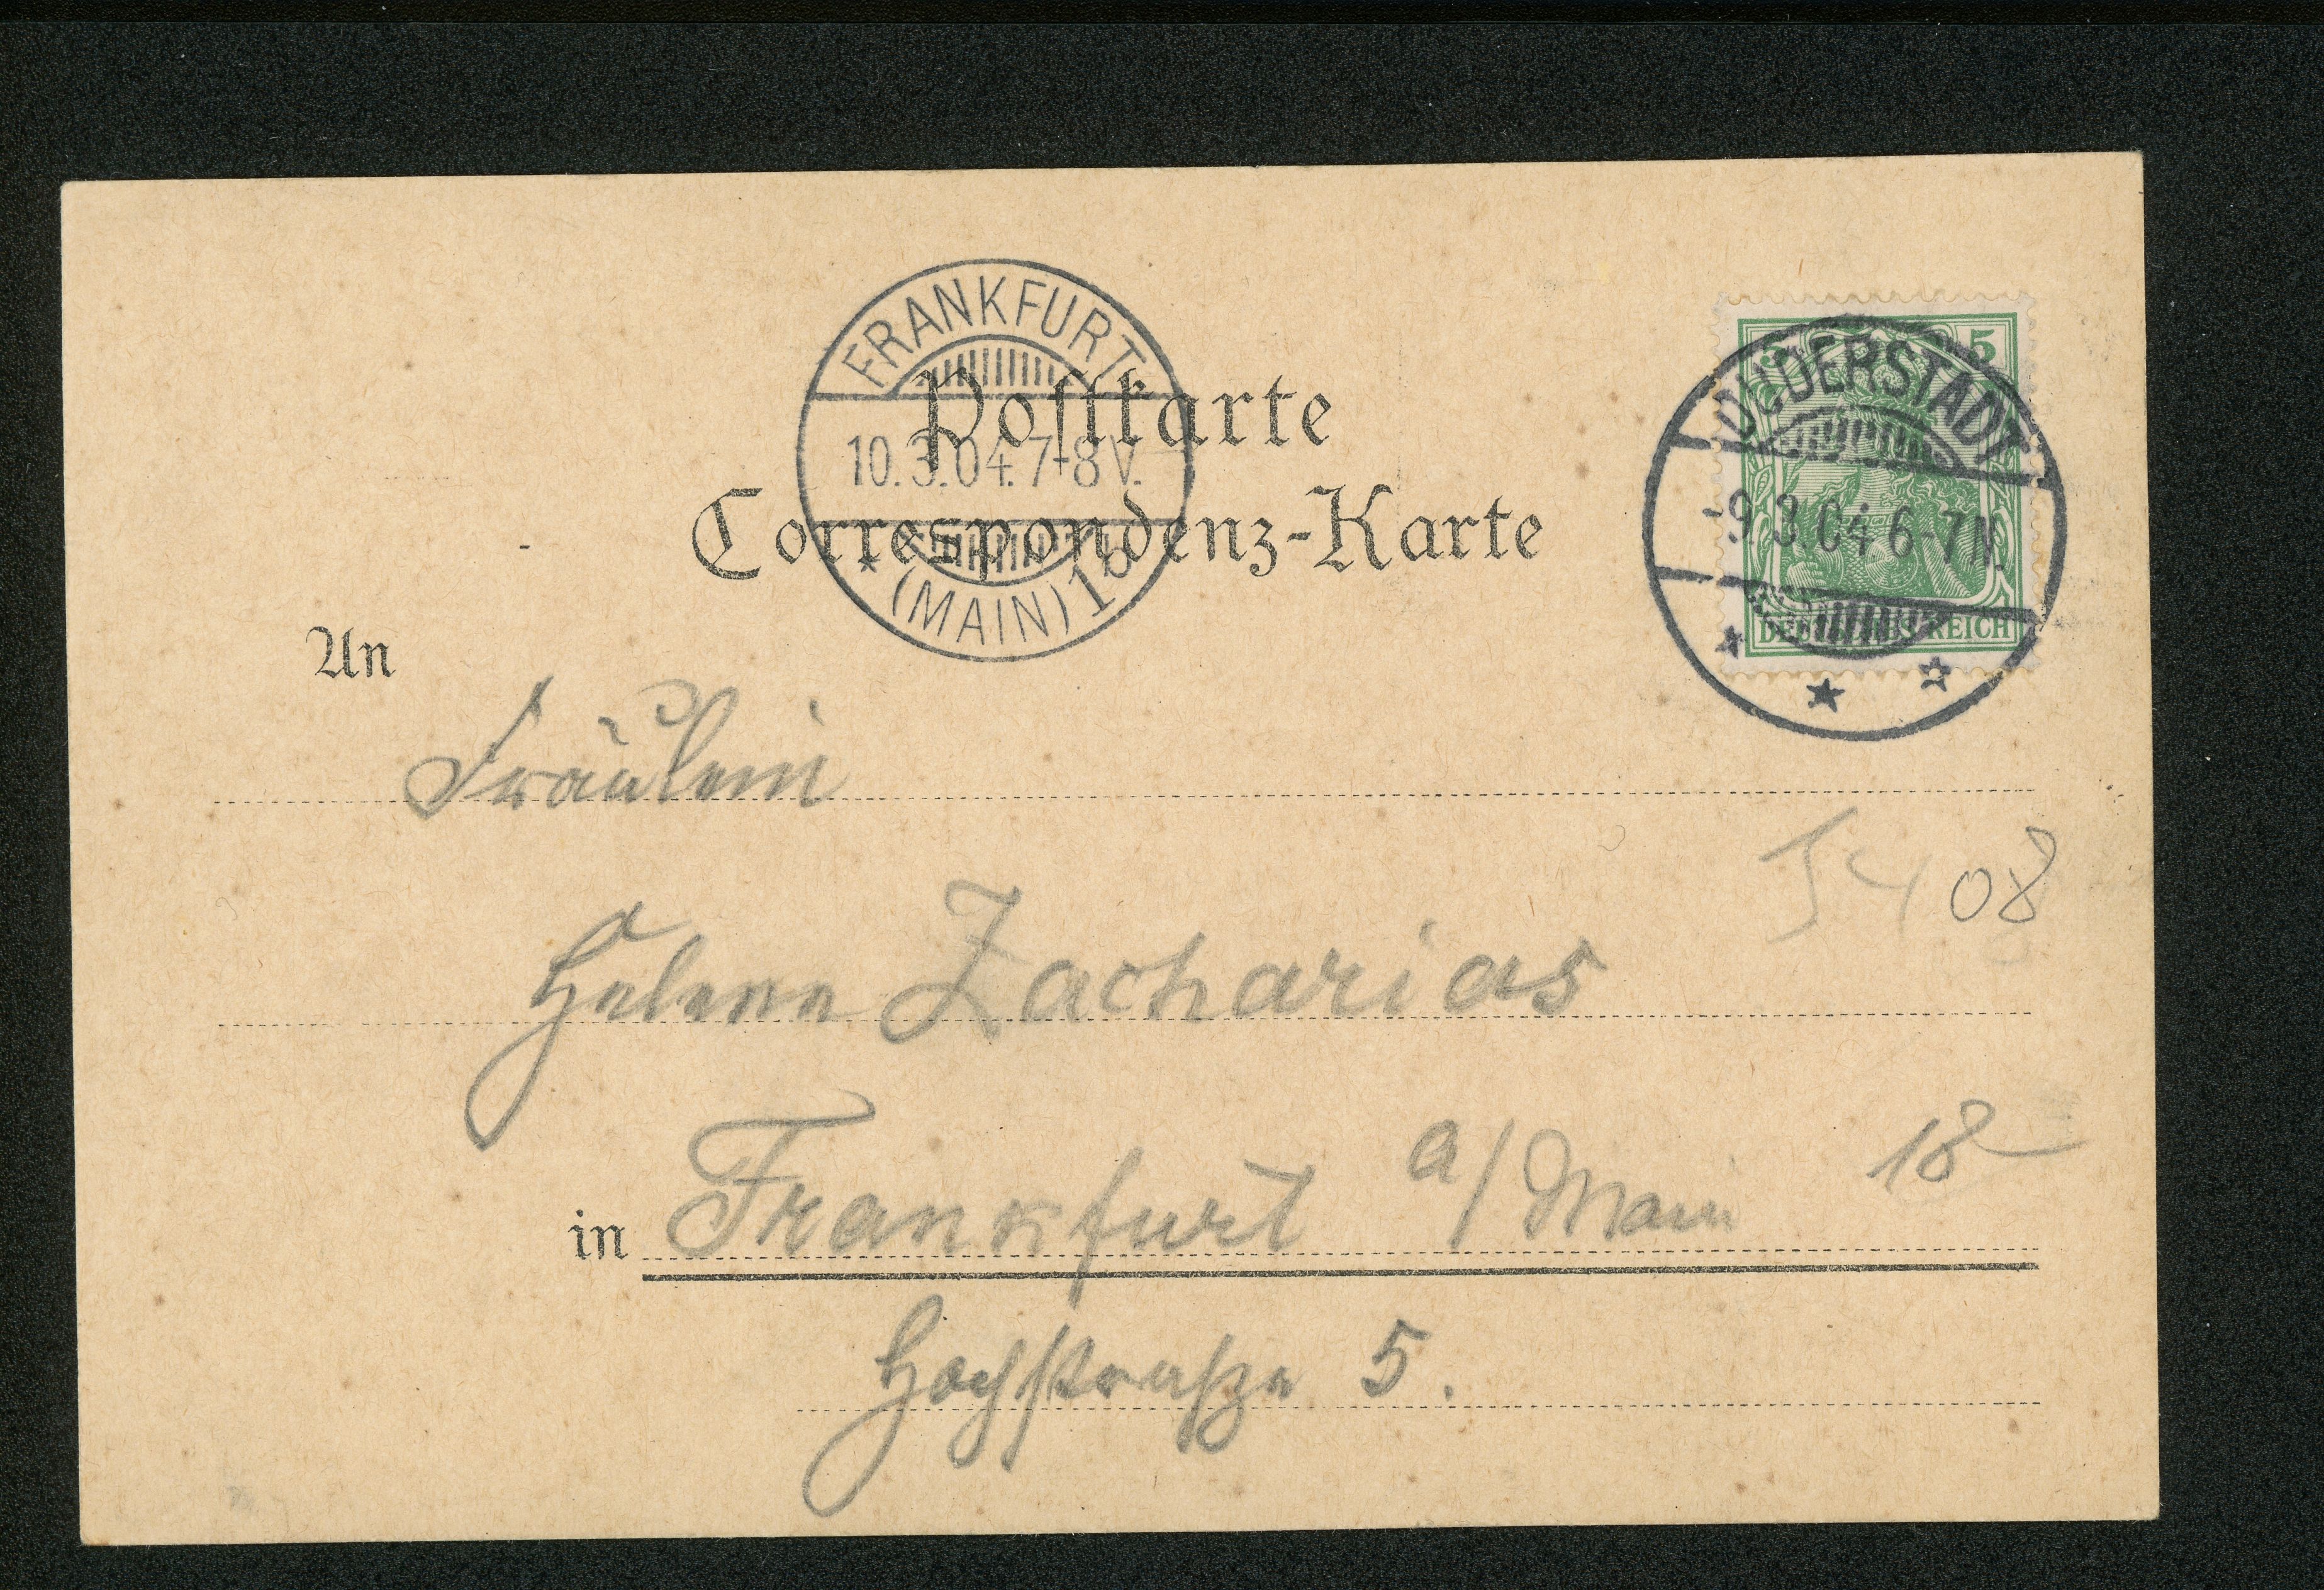 FRANKFURT
10.3.04.7-8V.
* (MAIN) 1b
Postkarte
Correspondenz-Karte
5 5
DUDERSTADT
-9.3.04 6-7N.
DEUTSCHES REICH
An
Fräulein
08
Helene Zacharias
in Frankfurt a/Main
18-
Hochstraße 5.